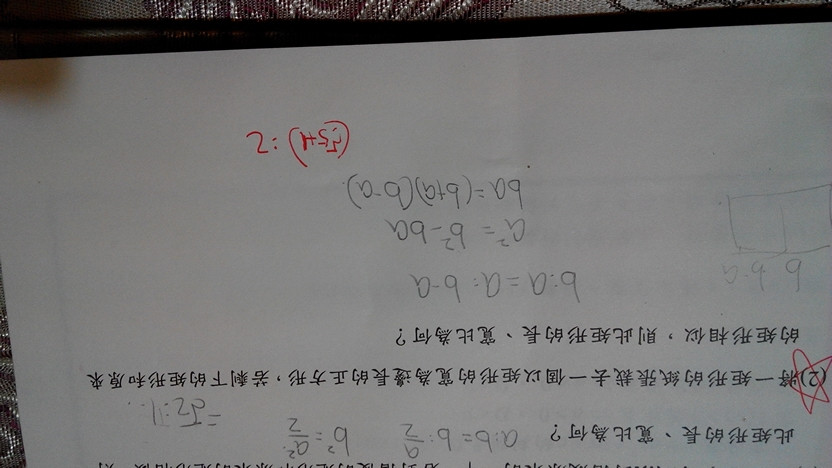 此矩形的長、寬比為何？
a:b=b:a/2  b²=a²/2
=√2:1
(2)將一矩形的紙張裁去一個以矩形的寬為邊長的正方形，若剩下的矩形和原來
的矩形相似，則此矩形的長、寬比為何？
b:a=a:b-a
b b-a
a²=b²-ba
ba=(b+a)(b-a)
(√5+1):2